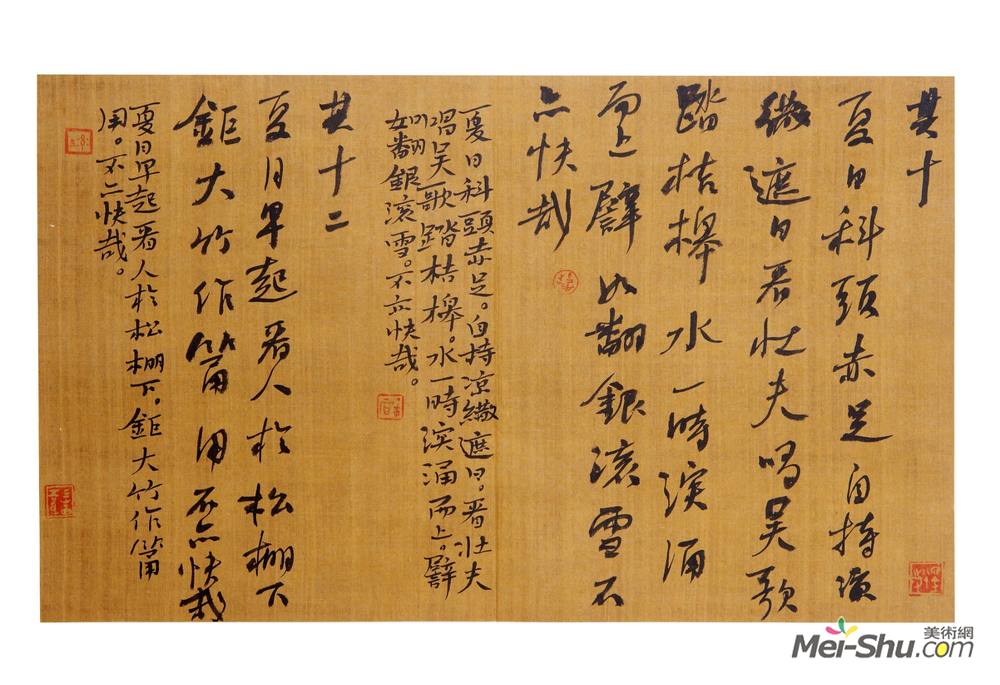 其十
夏日科頭赤足自持涼
繖遮日看壯夫唱吳歌
踏桔槔水一時湥涌
而上譬如翻銀滾雪不
亦快哉
夏日科頭赤足。自持涼繖遮日。看壯夫
唱吳歌踏桔槔。水一時湥涌而上。譬
如翻銀滾雪。不亦快哉。
其十二
夏月早起看人於松棚下
鉅大竹作筩用不亦快哉
夏月早起看人於松棚下。鉅大竹作筩
用。不亦快哉。
美術網
Mei-Shu.com